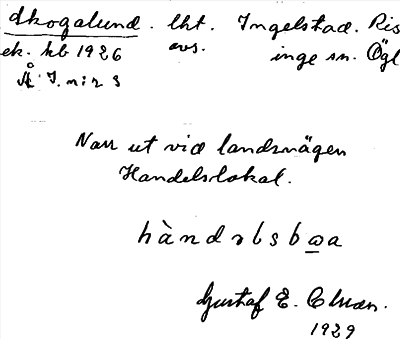 Skogalund. lht. Ingelstad. Ris
ek. kb 1926 avs. inge sn. Ögl
Å. J. n:r 3
Narr ut vid landsvägen
Handelslokal.
hàndəlsbωa
Gustaf E.
1929